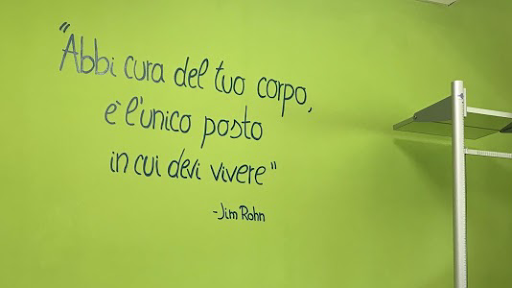 "Abbi cura del tuo corpo,
è l'unico posto
in cui devi vivere"
-Jim Rohn